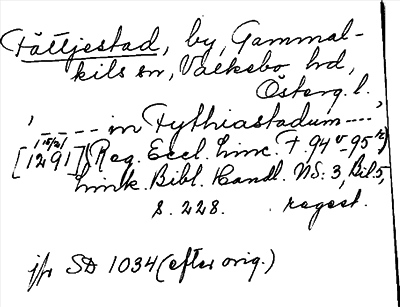 Fättjestad, by, Gammal-
kils sn, Valkebo hd,
Österg. l.
'---- in Fythiastadum ----',
15/2
[1291] (Reg. Eccl. Linc. F. 94v-95r)
Link. Bibl. Handl. NS: 3, Bil. 5,
s. 228. regest.
jfr SD 1034 (efter orig.)